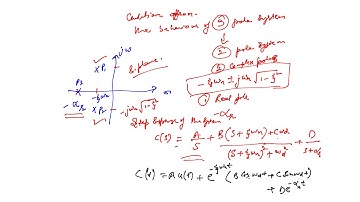 the behaviour of ③ poles system
② poles system
② Complex poles
- ξωn ± jωn √1-ξ²
① Real pole
-αR
jω
S-plane
P3
× P1
-ξωn
σ
-αR
× P2
-jωn√1-ξ²
Step response of the system
C(s) = A/S + B(s+ξωn)+Cωd/(s+ξωn)²+ωd² + D/s+αR
C(t) = A u(t) + e^-ξωnt (B cosωdt + C sinωdt)
+ De^-αRt